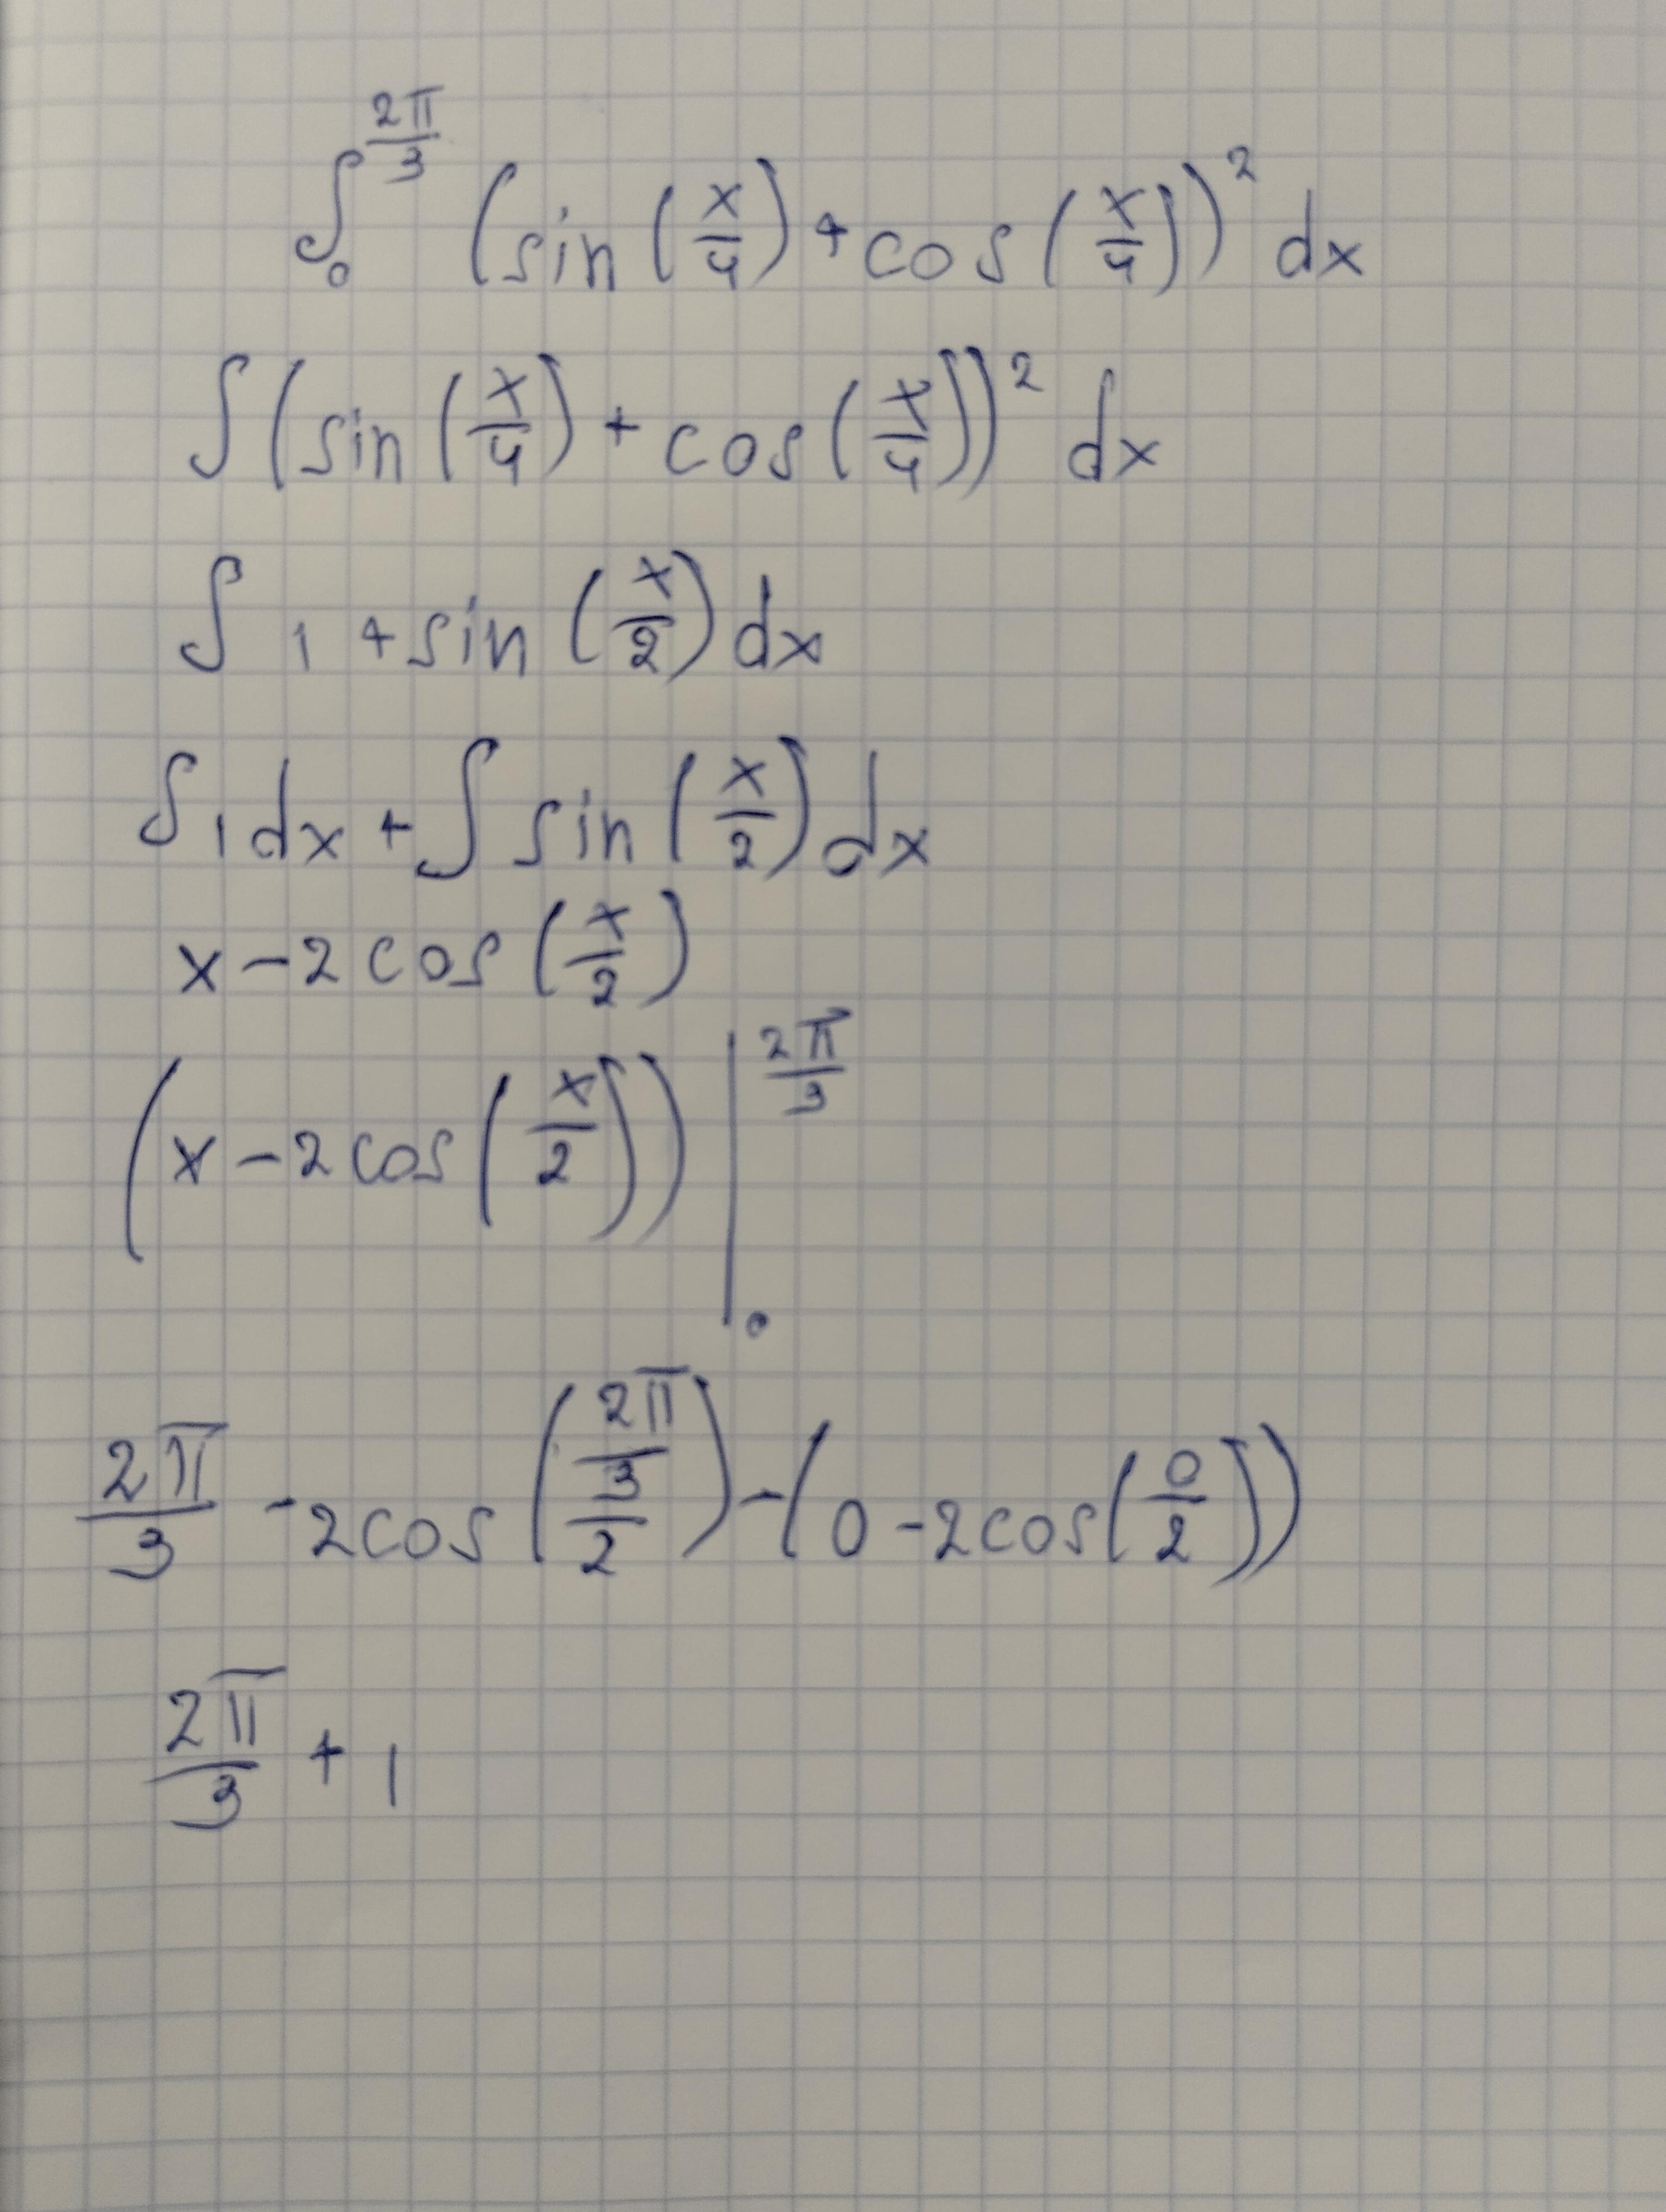 ∫₀^(2π/3) (sin(x/4) + cos(x/4))² dx
∫(sin(x/4) + cos(x/4))² dx
∫ 1 + sin(x/2) dx
∫ 1 dx + ∫ sin(x/2) dx
x - 2 cos(x/2)
(x - 2 cos(x/2)) |₀^(2π/3)
2π/3 - 2cos((2π/3)/2) - (0 - 2cos(0/2))
2π/3 + 1